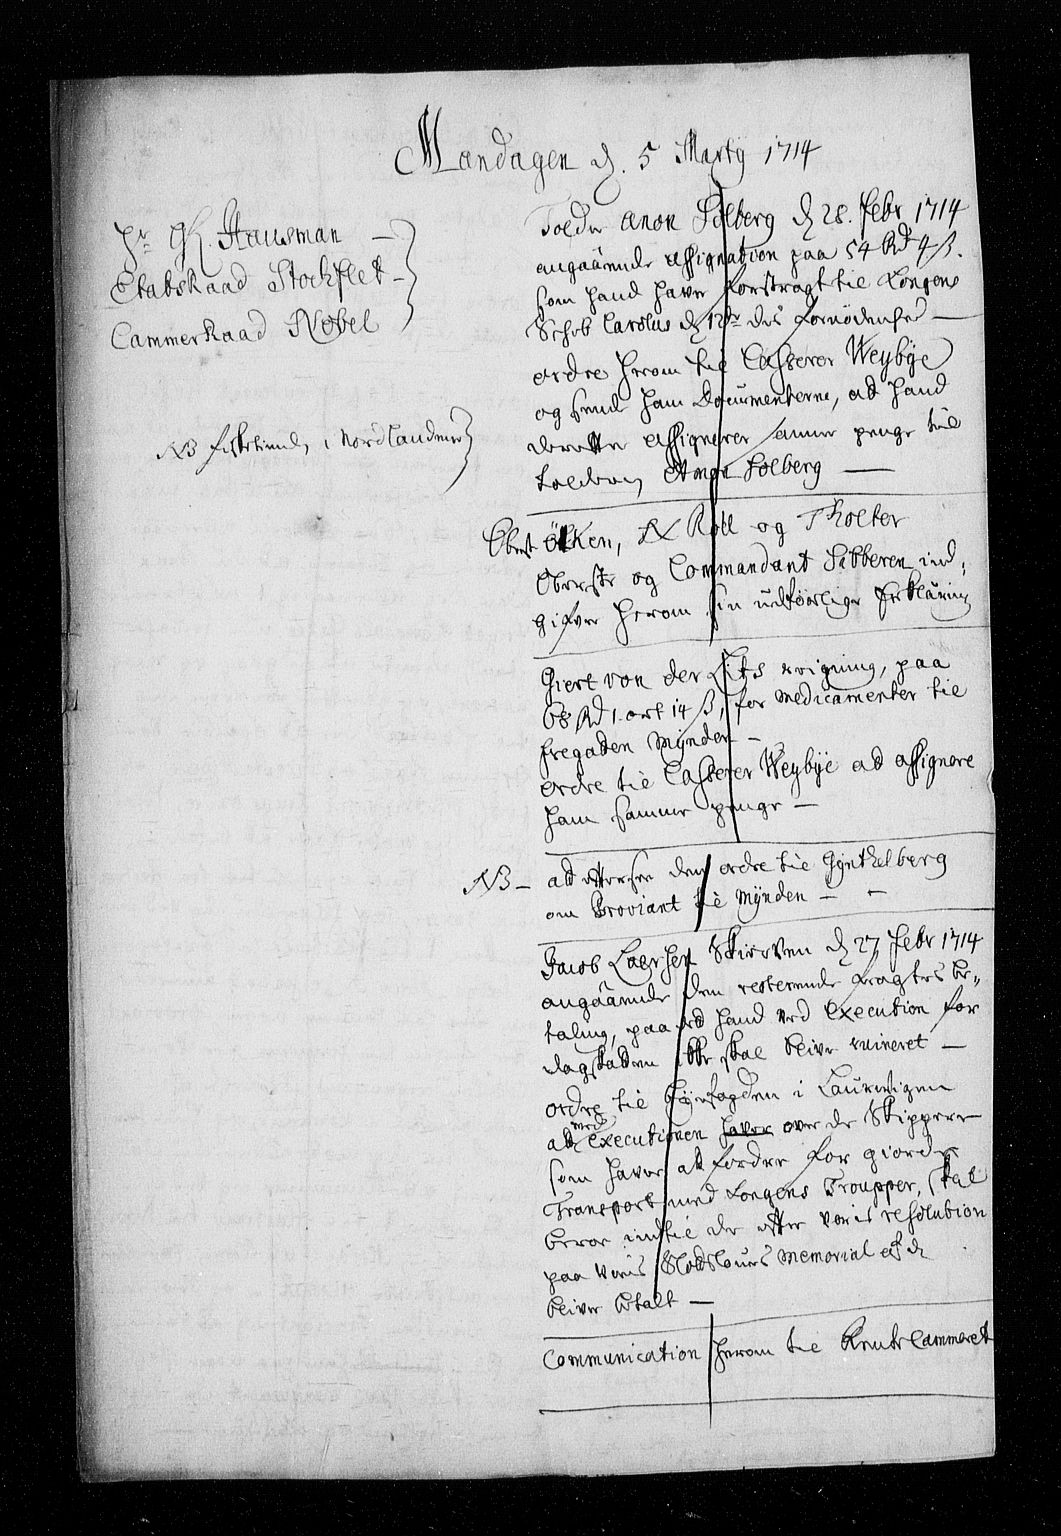 Mandagen d. 5 Marty 1714
Hr GL. Hausman —
Etatsraad Stockflet —
Cammerraad Nobel
NB fisketiende i Nordlandene
Tolder anon Solberg d 28. Febr 1714
angaaende assignation paa 54 Rd 4 ß.
som hand hafver forstragt til Kongens
Schib Carolus d 12te des fornødenhed —
ordre herom til Casserer Weybye
og send ham Documenterne, ad hand
derefter assignerer samme penge til
tolderen Amon Solberg —
Obrist Ötken, N Roll og Tholter
Oberste og Commandant Sibberen ind-
gifver herom sin udførlige Erklæring
Giert von der Lits reigning, paa
68 Rd 1. ort 14 ß, for Medicamenter til
fregaden Mynden —
ordre til Casserer Weybye ad assignere
ham samme penge —
NB — ad efterse den ordre til Gynthelberg
om Proviant til Mynden —
Jacob Laersen Skierven d 27 Febr 1714
angaaende den resterende fragtes be-
taling, paa ad hand ved Execution for
dagskatten ikke skal blive ruineret —
ordre til Byefogden i Laurvigen
at med Executionen haver over de Skippere
som haver at fordre for giorde
Transport med Kongens Troupper, skal
beroe indtil de efter voris resolution
paa voris Slodslougs Memorial af d
bliver betalt —
Communication herom til Rentecammeret